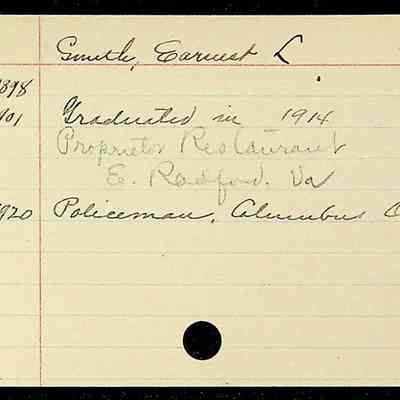 Smith, Earnest L
1898
1901 Graduated in 1914
Proprietor Restaurant
E. Radford, Va
1920 Policeman, Columbus O